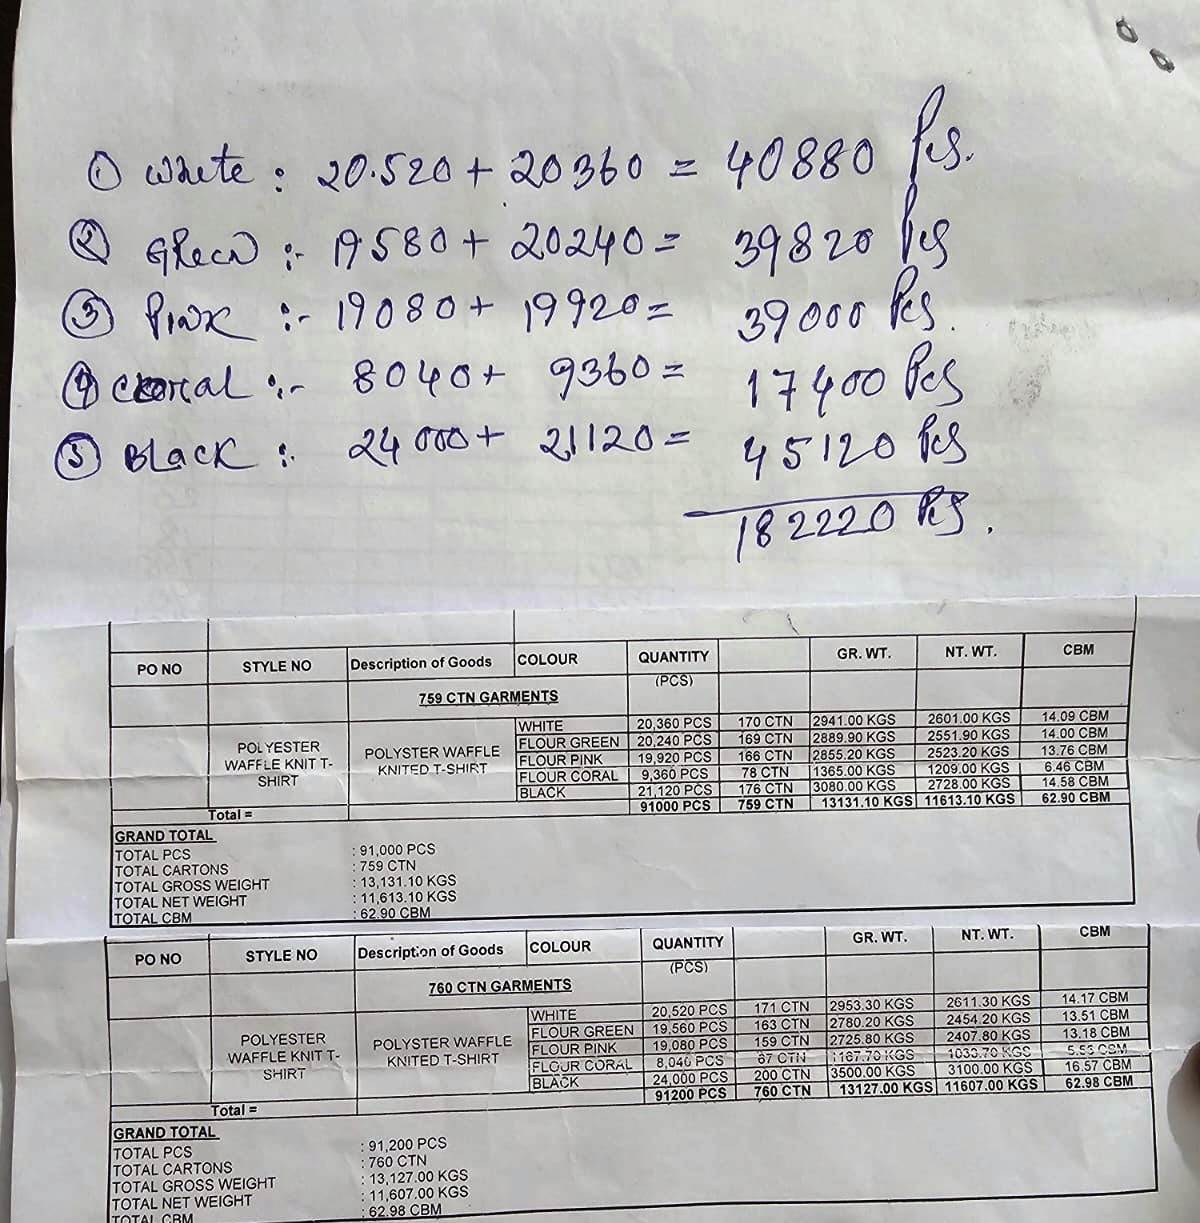 ① White : 20.520 + 20360 = 40880 Pcs.
② Green :- 19.580 + 20240 = 39820 Pcs
③ Pink :- 19080 + 19920 = 39000 Pcs.
④ Coral :- 8040 + 9360 = 17400 Pcs
⑤ Black :- 24000 + 21120 = 45120 Pcs
182220 Pcs.
PO NO STYLE NO Description of Goods COLOUR QUANTITY (PCS) GR. WT. NT. WT. CBM
759 CTN GARMENTS
POLYESTER WAFFLE KNIT T-SHIRT POLYSTER WAFFLE KNITED T-SHIRT
WHITE 20,360 PCS 170 CTN 2941.00 KGS 2601.00 KGS 14.09 CBM
FLOUR GREEN 20,240 PCS 169 CTN 2889.90 KGS 2551.90 KGS 14.00 CBM
FLOUR PINK 19,920 PCS 166 CTN 2855.20 KGS 2523.20 KGS 13.76 CBM
FLOUR CORAL 9,360 PCS 78 CTN 1365.00 KGS 1209.00 KGS 6.46 CBM
BLACK 21,120 PCS 176 CTN 3080.00 KGS 2728.00 KGS 14.58 CBM
Total = 91000 PCS 759 CTN 13131.10 KGS 11613.10 KGS 62.90 CBM
GRAND TOTAL
TOTAL PCS : 91,000 PCS
TOTAL CARTONS : 759 CTN
TOTAL GROSS WEIGHT : 13,131.10 KGS
TOTAL NET WEIGHT : 11,613.10 KGS
TOTAL CBM : 62.90 CBM
PO NO STYLE NO Description of Goods COLOUR QUANTITY (PCS) GR. WT. NT. WT. CBM
760 CTN GARMENTS
POLYESTER WAFFLE KNIT T-SHIRT POLYSTER WAFFLE KNITED T-SHIRT
WHITE 20,520 PCS 171 CTN 2953.30 KGS 2611.30 KGS 14.17 CBM
FLOUR GREEN 19,560 PCS 163 CTN 2780.20 KGS 2454.20 KGS 13.51 CBM
FLOUR PINK 19,080 PCS 159 CTN 2725.80 KGS 2407.80 KGS 13.18 CBM
FLOUR CORAL 8,040 PCS 67 CTN 1167.70 KGS 1033.70 KGS CBM
BLACK 24,000 PCS 200 CTN 3500.00 KGS 3100.00 KGS 16.57 CBM
Total = 91200 PCS 760 CTN 13127.00 KGS 11607.00 KGS 62.98 CBM
GRAND TOTAL
TOTAL PCS : 91,200 PCS
TOTAL CARTONS : 760 CTN
TOTAL GROSS WEIGHT : 13,127.00 KGS
TOTAL NET WEIGHT : 11,607.00 KGS
TOTAL CBM : 62.98 CBM